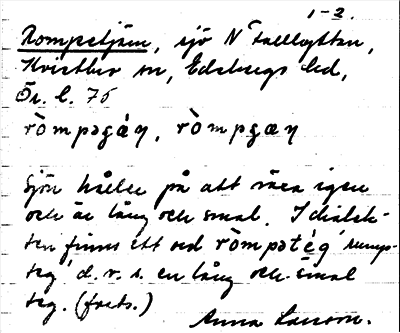 1-2.
Rompetjärn, sjö N Fallhyttan,
Kvistbro sn, Edsbergs hd,
Ör. l. 75
ròmpəgáŋ, ròmpgæŋ
Sjön håller på att växa igen
och är lång och smal. I dialek-
ten finns ett ord ròmpətég 'rumpe-
teg' d. v. s. en lång och smal
teg. (forts.)
Anna Larsson.